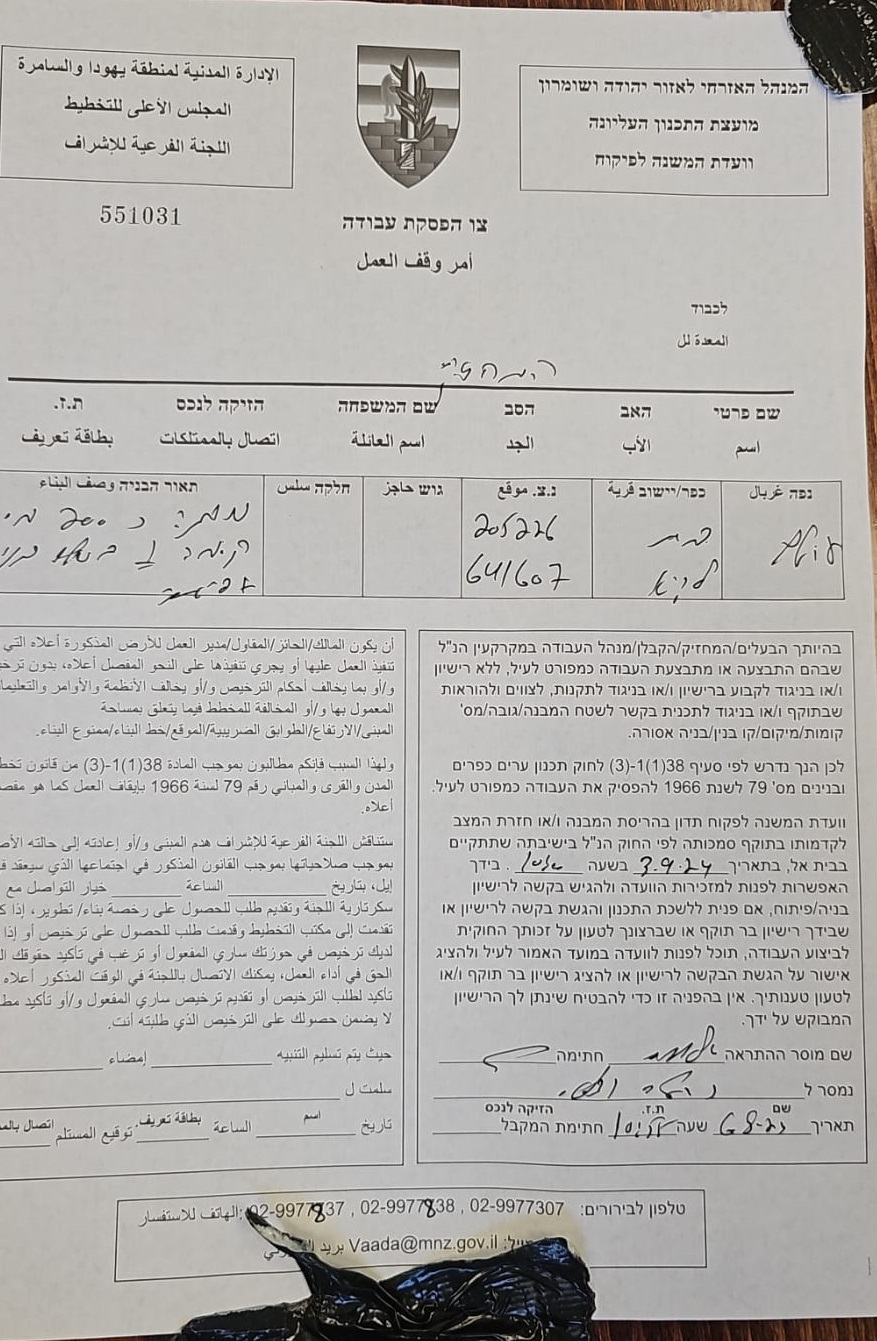 המנהל האזרחי לאזור יהודה ושומרון
מועצת התכנון העליונה
וועדת המשנה לפיקוח
الإدارة المدنية لمنطقة يهودا والسامرة
المجلس الأعلى للتخطيط
اللجنة الفرعية للإشراف
551031
צו הפסקת עבודה
أمر وقف العمل
לכבוד
المعدة لل
שם פרטי האב הסב שם המשפחה הזיקה לנכס ת.ז.
اسم الأب الجد اسم العائلة اتصال بالممتلكات بطاقة تعريف
נפה غربال כפר/יישוב قرية נ.צ. موقع גוש حاجز חלקה سلس תאור הבניה وصف البناء
205226
641607
בהיותך הבעלים/המחזיק/הקבלן/מנהל העבודה במקרקעין הנ"ל
שבהם התבצעה או מתבצעת העבודה כמפורט לעיל, ללא רישיון
ו/או בניגוד לקבוע ברישיון ו/או בניגוד לתקנות, לצווים ולהוראות
שבתוקף ו/או בניגוד לתכנית בקשר לשטח המבנה/גובה/מס'
קומות/מיקום/קו בנין/בניה אסורה.
לכן הנך נדרש לפי סעיף 38(1)(1-(3) לחוק תכנון ערים כפרים
ובנינים מס' 79 לשנת 1966 להפסיק את העבודה כמפורט לעיל.
וועדת המשנה לפקוח תדון בהריסת המבנה ו/או חזרת המצב
לקדמותו בתוקף סמכותה לפי החוק הנ"ל בישיבתה שתתקיים
בבית אל, בתאריך 3.9.24 בשעה . בידך
האפשרות לפנות למזכירות הוועדה ולהגיש בקשה לרישיון
בניה/פיתוח, אם פנית ללשכת התכנון והגשת בקשה לרישיון או
שבידך רישיון בר תוקף או שברצונך לטעון על זכותך החוקית
לביצוע העבודה, תוכל לפנות לוועדה במועד האמור לעיל ולהציג
אישור על הגשת הבקשה לרישיון או להציג רישיון בר תוקף ו/או
לטעון טענותיך. אין בהפניה זו כדי להבטיח שינתן לך הרישיון
המבוקש על ידך.
שם מוסר ההתראה חתימה
נמסר ל
שם ת.ז. הזיקה לנכס
תאריך שעה חתימת המקבל
أن يكون المالك/الحائز/المقاول/مدير العمل للأرض المذكورة أعلاه التي
تنفيذ العمل عليها أو يجري تنفيذها على النحو المفصل أعلاه، بدون
و/أو بما يخالف أحكام الترخيص و/أو يخالف الأنظمة والأوامر
المعمول بها و/أو المخالفة للمخطط فيما يتعلق بمساحة
المبنى/الارتفاع/الطوابق الضريبية/الموقع/خط البناء/ممنوع البناء.
ولهذا السبب فإنكم مطالبون بموجب المادة 38(1)(1-(3) من قانون
المدن والقرى والمباني رقم 79 لسنة 1966 بإيقاف العمل كما هو
أعلاه.
ستناقش اللجنة الفرعية للإشراف هدم المبنى و/أو إعادته إلى حالته
بموجب صلاحياتها بموجب القانون المذكور في اجتماعها الذي سيعقد
إيل، بتاريخ الساعة خيار التواصل مع
سكرتارية اللجنة وتقديم طلب للحصول على رخصة بناء/ تطوير، إذا
تقدمت إلى مكتب التخطيط وقدمت طلب للحصول على ترخيص أو إذا
لديك ترخيص في حوزتك ساري المفعول أو ترغب في تأكيد حقوقك
الحق في أداء العمل، يمكنك الاتصال باللجنة في الوقت المذكور أعلاه
تأكيد لطلب الترخيص أو تقديم ترخيص ساري المفعول و/أو تأكيد
لا يضمن حصولك على الترخيص الذي طلبته أنت.
حيث يتم تسليم التنبيه إمضاء
سلمت ل
اسم بطاقة تعريف
تاريخ الساعة توقيع المستلم
טלפון לבירורים: 02-9977307 , 02-9977838 , 02-9977837 :الهاتف للاستفسار
Vaada@mnz.gov.il بريد